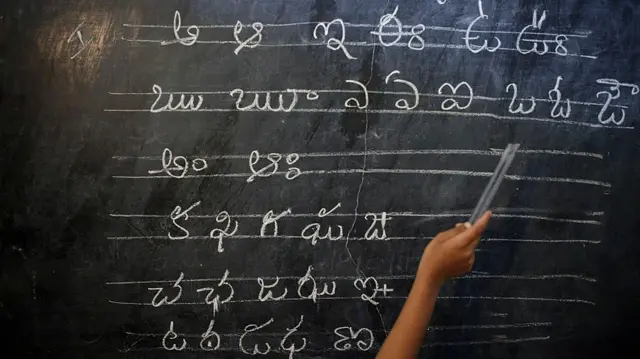 అ ఆ ఇ ఈ ఉ ఊ
ఋ ౠ ఎ ఏ ఐ ఒ ఓ ఔ
అం ఆః
క ఖ గ ఘ ఙ
చ ఛ జ ఝ ఞ
ట ఠ డ ఢ ణ